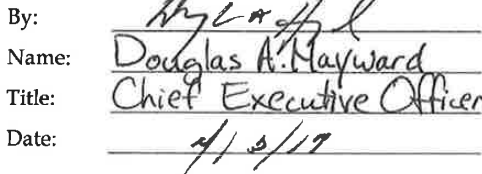 By:
Name: Douglas A. Hayward
Title: Chief Executive Officer
Date: